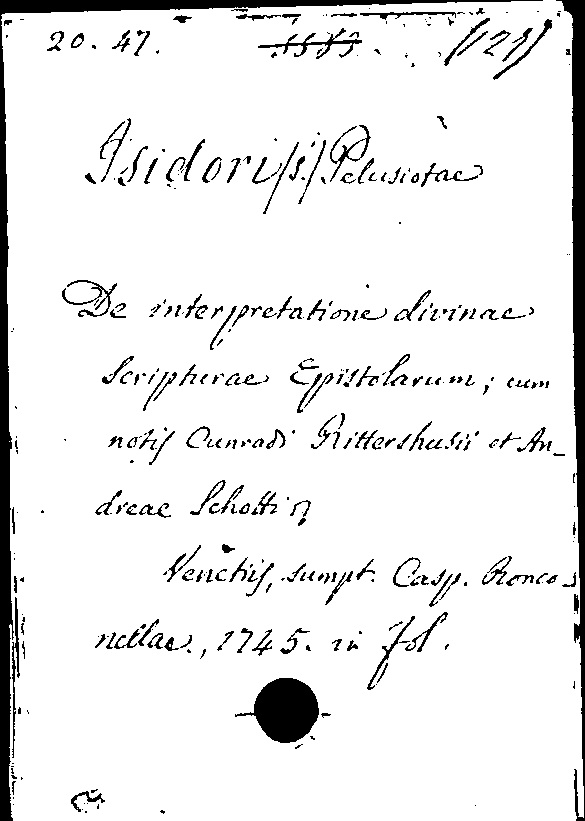 20. 47. 1583. (121)
Isidori (s.) Pelusiotae
De interpretatione divinae
scripturae Epistolarum; cum
notis Cunradi Rittershusii et An-
dreae Schotti
Venetiis, sumpt. Casp. Ronco-
nellae., 1745. in fol.